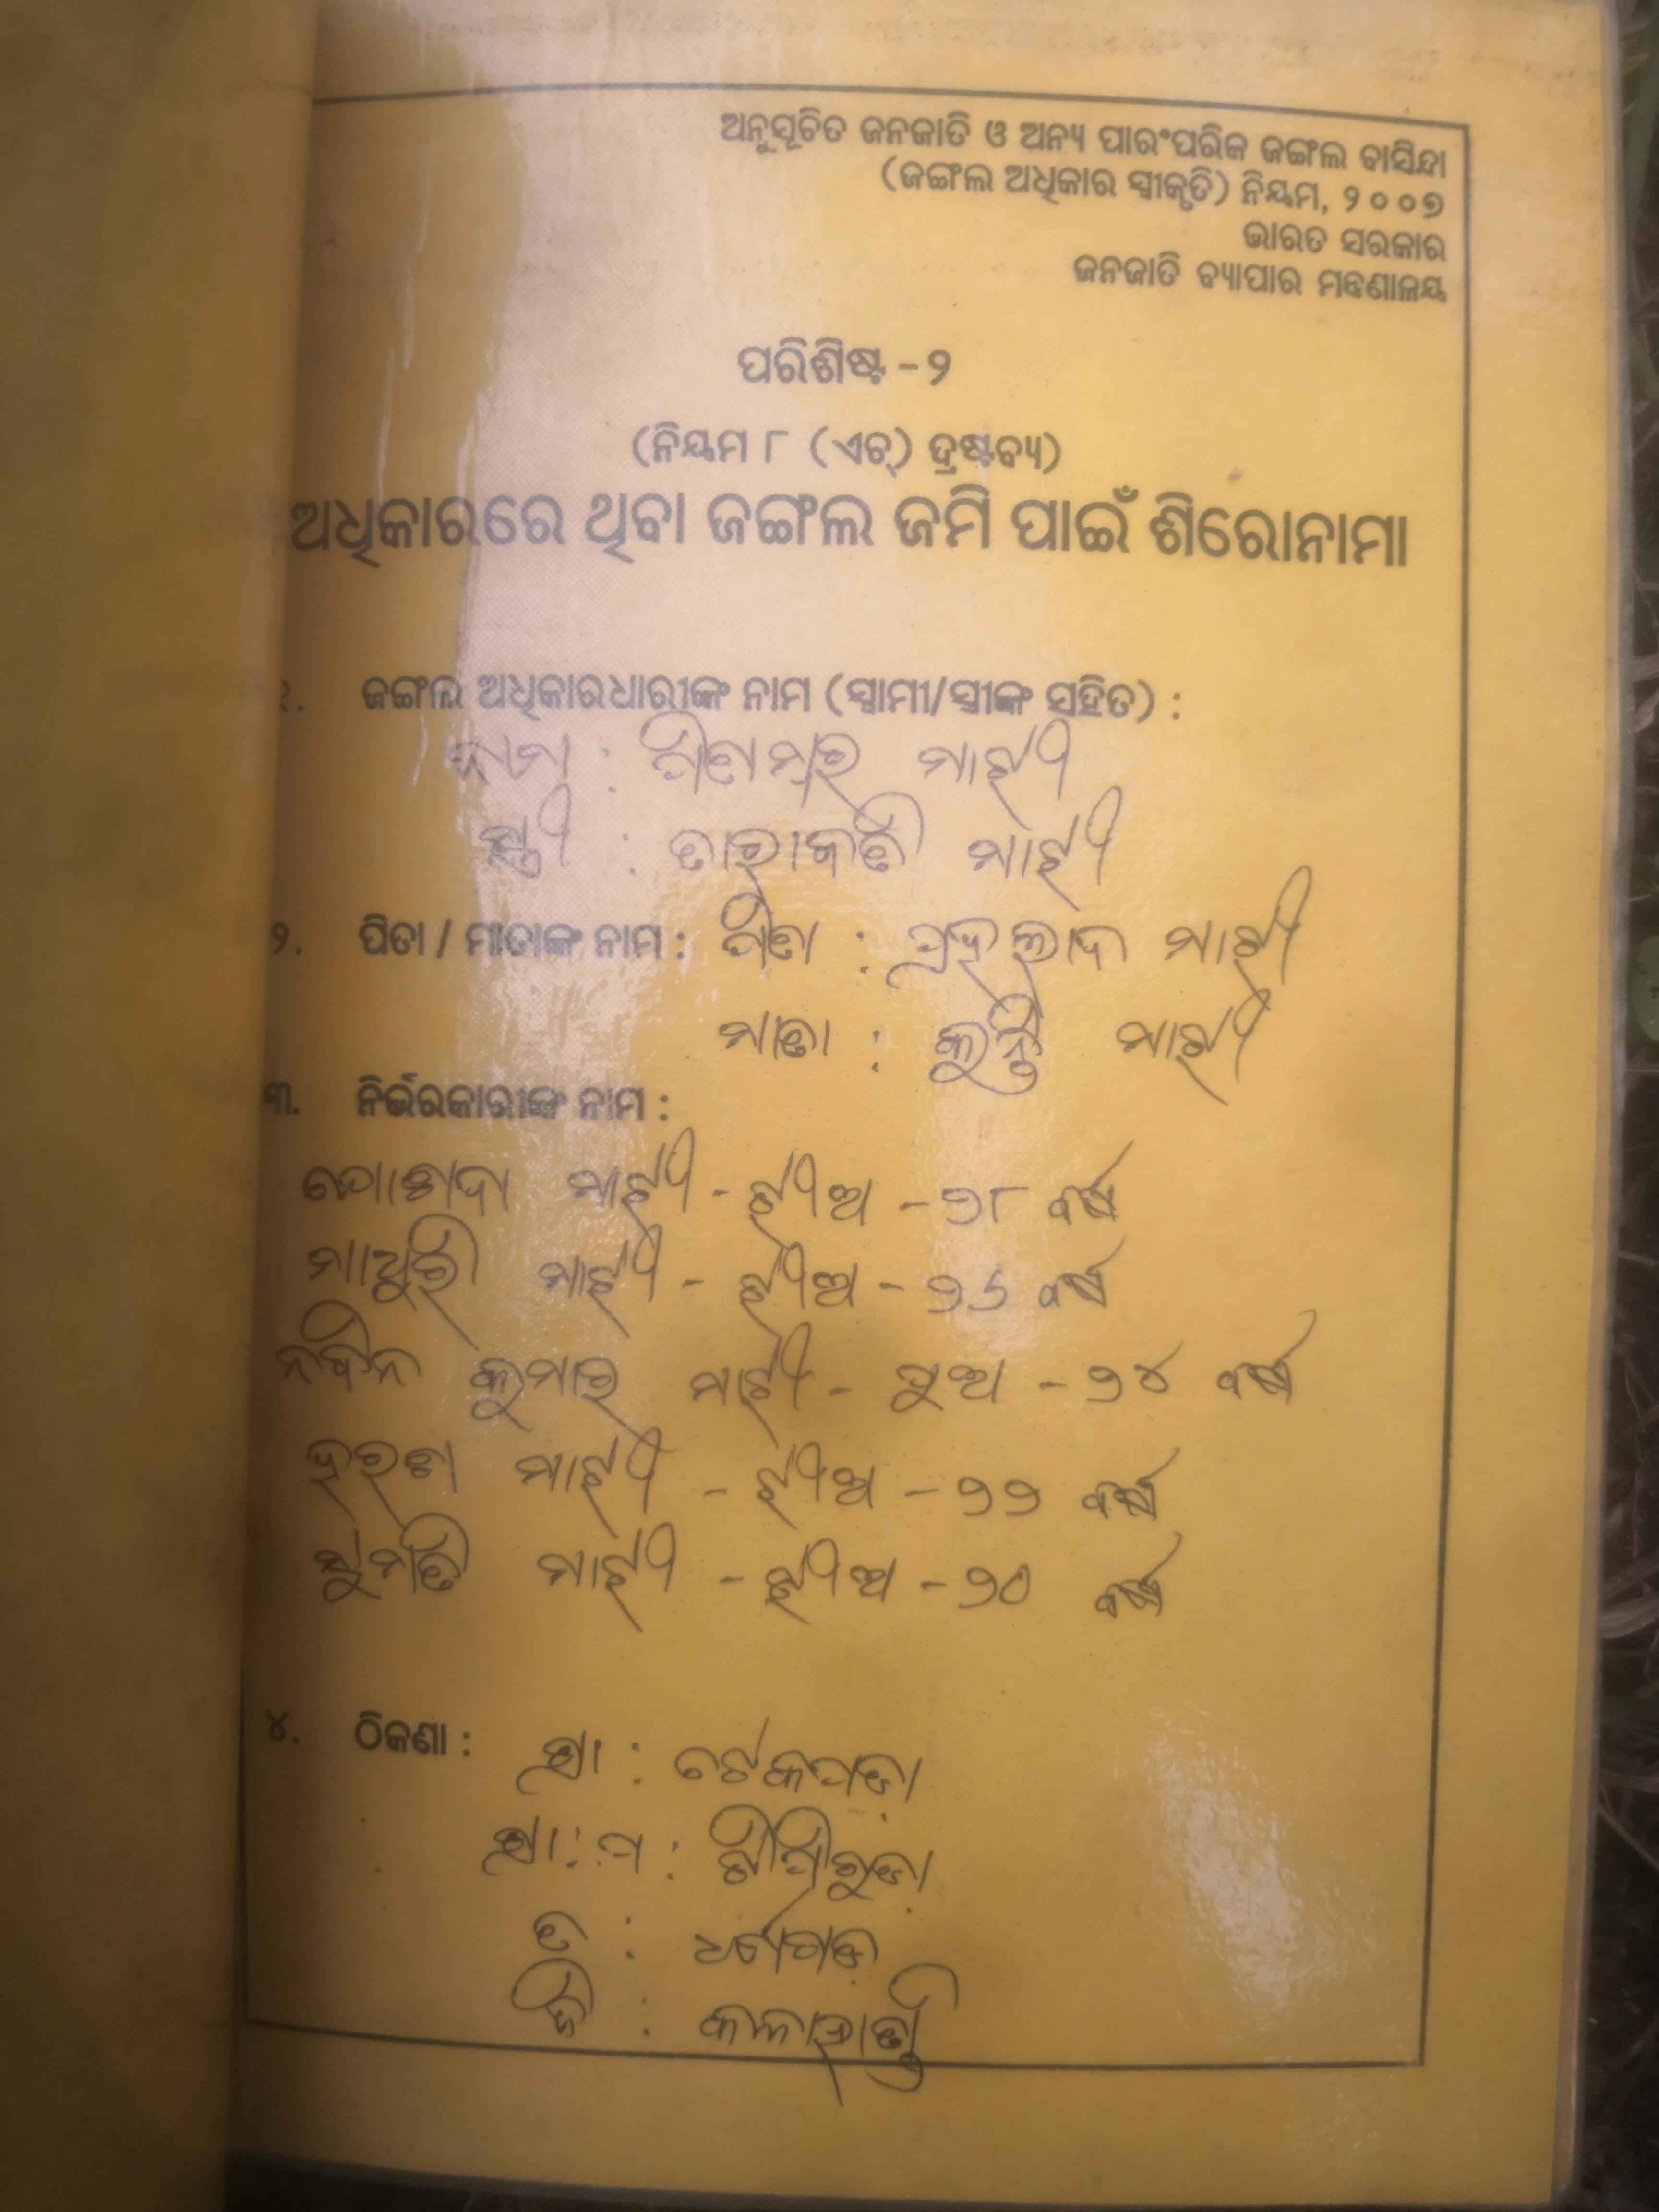 ଅନୁସୂଚିତ ଜନଜାତି ଓ ଅନ୍ୟ ପାରଂପରିକ ଜଙ୍ଗଲ ବାସିନ୍ଦା
(ଜଙ୍ଗଲ ଅଧିକାର ସ୍ୱୀକୃତି) ନିୟମ, ୨୦୦୭
ଭାରତ ସରକାର
ଜନଜାତି ବ୍ୟାପାର ମନ୍ତ୍ରଣାଳୟ
ପରିଶିଷ୍ଟ - ୨
(ନିୟମ ୮ (ଏଚ୍) ଦ୍ରଷ୍ଟବ୍ୟ)
ଅଧିକାରରେ ଥିବା ଜଙ୍ଗଲ ଜମି ପାଇଁ ଶିରୋନାମା
୧. ଜଙ୍ଗଲ ଅଧିକାରଧାରୀଙ୍କ ନାମ (ସ୍ୱାମୀ/ସ୍ତ୍ରୀଙ୍କ ସହିତ) :
ନାମ : ପିତାମ୍ବର ମାଝୀ
ସ୍ତ୍ରୀ : ତାରାବତି ମାଝୀ
୨. ପିତା / ମାତାଙ୍କ ନାମ : ପିତା : ପ୍ରହଲ୍ଲାଦ ମାଝୀ
ମାତା : କୁନ୍ତି ମାଝୀ
୩. ନିର୍ଭରକାରୀଙ୍କ ନାମ :
ମାଝୀ - ଝିଅ - ୨୮ ବର୍ଷ
ମାଧୁରି ମାଝୀ - ଝିଅ - ୨୬ ବର୍ଷ
ନବିନ କୁମାର ମାଝୀ - ପୁଅ - ୨୪ ବର୍ଷ
ମାଝୀ - ଝିଅ - ୨୨ ବର୍ଷ
ସୁମତି ମାଝୀ - ଝିଅ - ୨୦ ବର୍ଷ
୪. ଠିକଣା : ଗ୍ରା : ଟେକପଡ଼ା
ଗ୍ରା: ପ :
ତ : ଧର୍ମଗଡ଼
ଜି : କଳାହାଣ୍ଡି